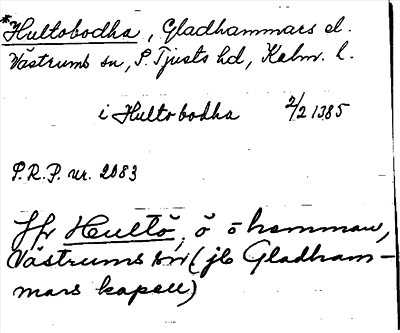 *Hultobodha, Gladhammars el.
Västrums sn, S. Tjusts hd, Kalm. l.
i Hultobodha 2/2 1385
P.R.P. nr. 2083
Jfr Hultö, ö o hemman,
Västrums sn (jb Gladham-
mars kapell)